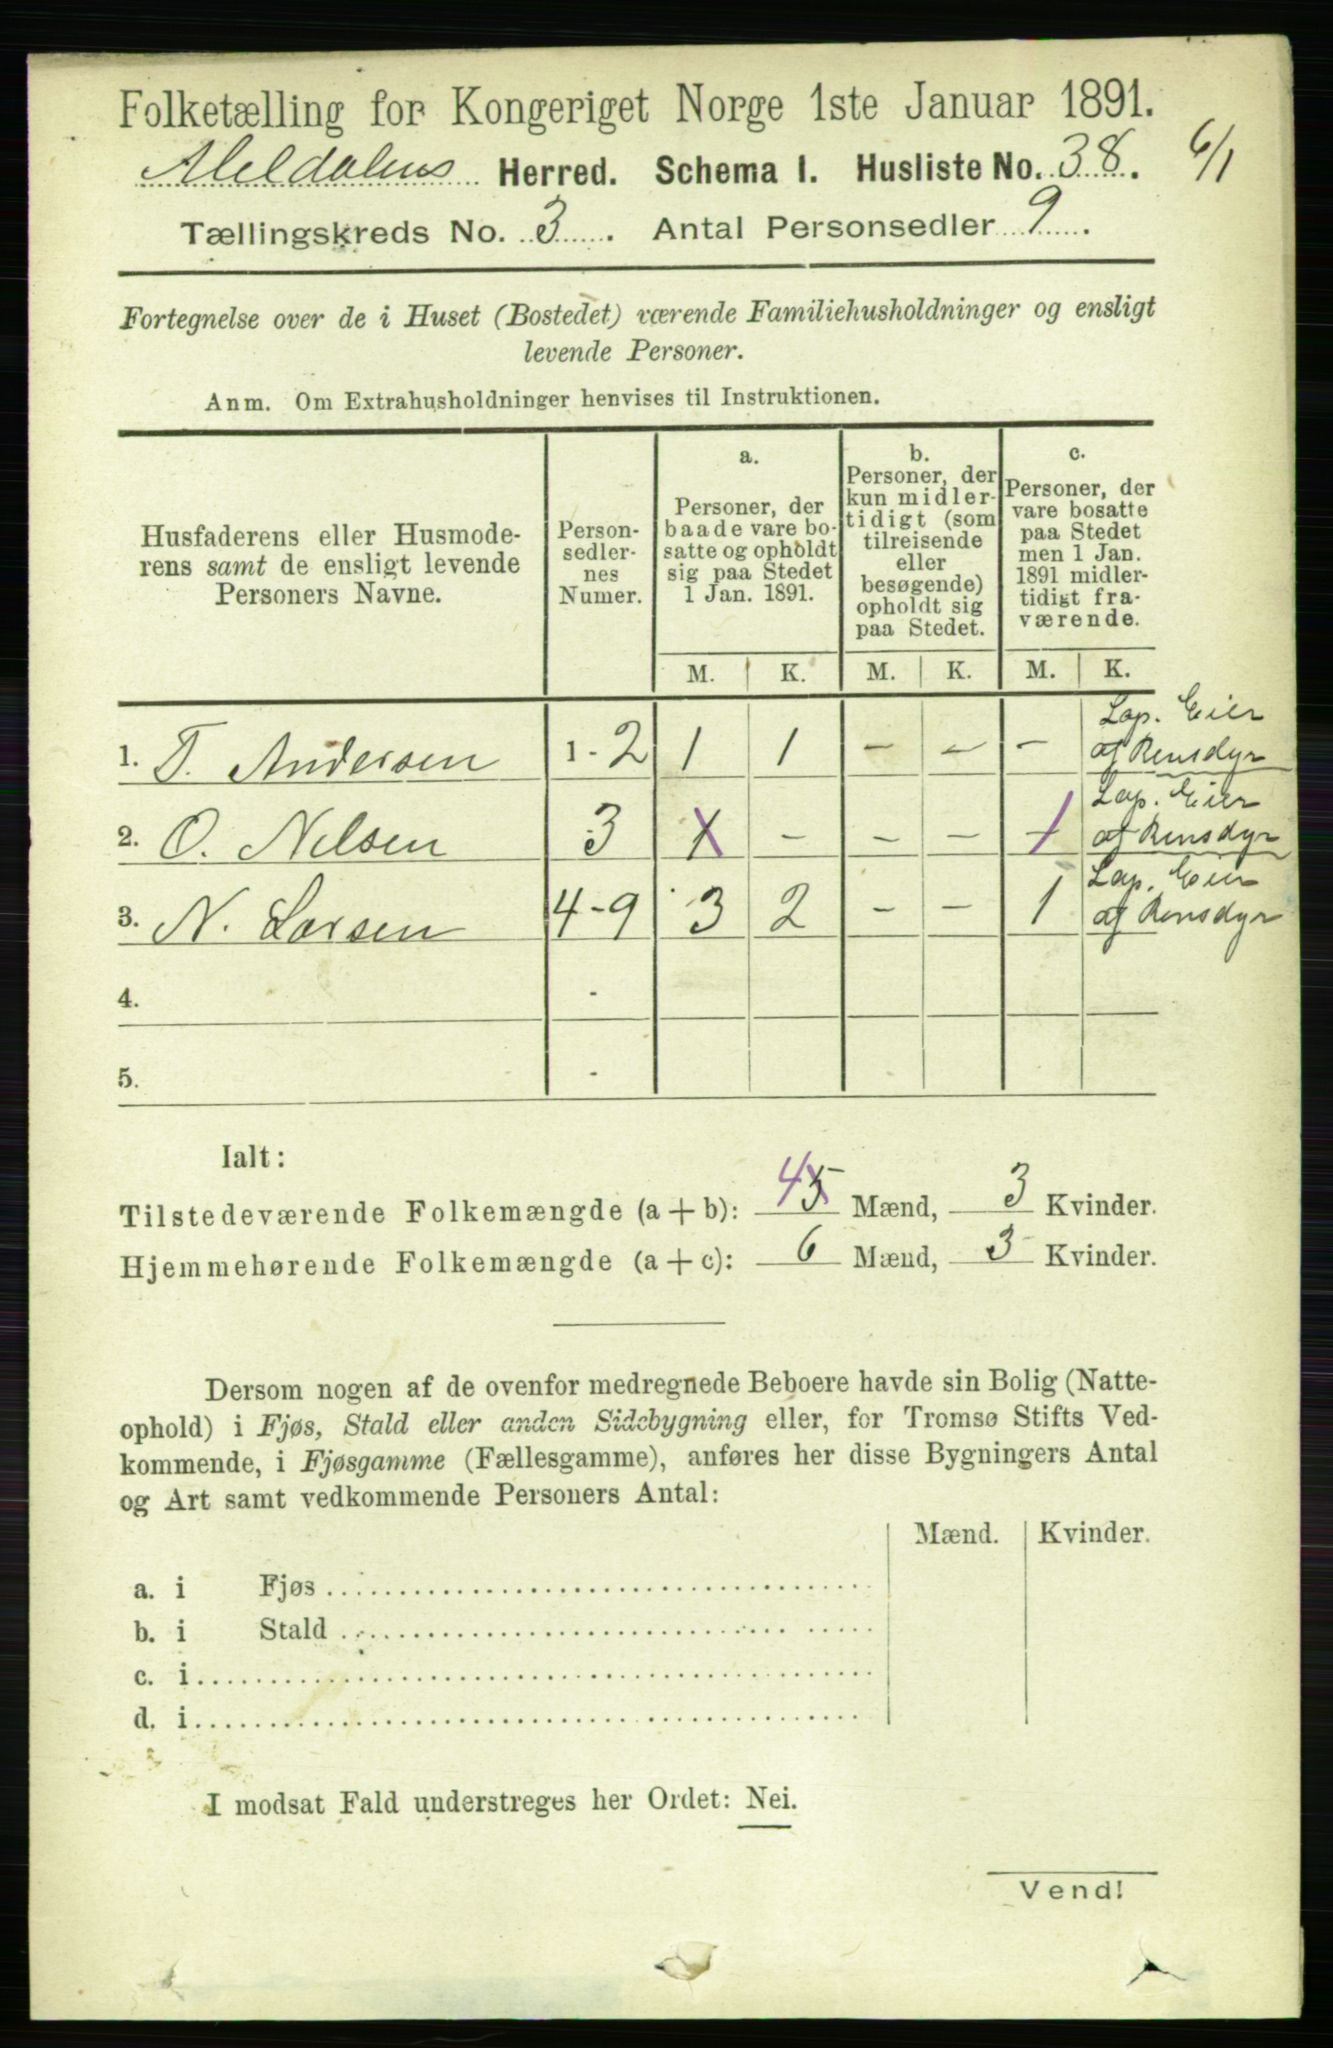 Folketælling for Kongeriget Norge 1ste Januar 1891.
Meldalens Herred. Schema 1. Husliste No. 38. 6/1
Tællingskreds No. 3. Antal Personsedler 9.
Fortegnelse over de i Huset (Bostedet) værende Familiehusholdninger og ensligt
levende Personer.
Anm. Om Extrahusholdninger henvises til Instruktionen.
Husfaderens eller Husmode-
rens samt de ensligt levende
Personers Navne.
Person-
sedler-
nes
Numer.
a.
Personer, der
baade vare bo-
satte og opholdt
sig paa Stedet
1 Jan. 1891.
b.
Personer, der
kun midler-
tidigt (som
tilreisende
eller
besøgende)
opholdt sig
paa Stedet.
c.
Personer, der
vare bosatte
paa Stedet
men 1 Jan.
1891 midler-
tidigt fra-
værende.
M. K. M. K. M. K.
1. T. Andersen 1 - 2 1 1 - - - Lap. Eier
af Rensdyr
2. O. Nelsen 3 X - - - 1 Lap. Eier
af Rensdyr
3. N. Larsen 4-9 3 2 - - 1 Lap. Eier
af Rensdyr
4. -
5. -
Ialt:
Tilstedeværende Folkemængde (a + b): 4 5 Mænd, 3 Kvinder.
Hjemmehørende Folkemængde (a + c): 6 Mænd, 3 Kvinder.
Dersom nogen af de ovenfor medregnede Beboere havde sin Bolig (Natte-
ophold) i Fjøs, Stald eller anden Sidebygning eller, for Tromsø Stifts Ved-
kommende, i Fjøsgamme (Fællesgamme), anføres her disse Bygningers Antal
og Art samt vedkommende Personers Antal:
Mænd. Kvinder.
a. i Fjøs
b. i Stald
c. i
d. i
I modsat Fald understreges her Ordet: Nei.
Vend!